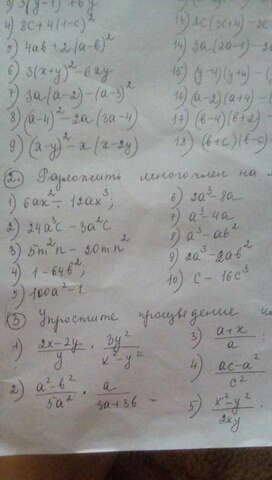 3) 3(y-1)²+6y
4) 8c+4(1-c)²
5) 4ab+2(a-b)²
6) 3(x+y)²-6xy
7) 3a(a-2)-(a-3)²
8) (a-4)²-2a(3a-4)
9) (x-y)²-x(x-2y)
13)
14) 3a(2a-1)-2
15) (y-4)(y+4)-
16) (a-2)(a+4)-
17) (b-4)(b+2)-
18) (b+c)(b-c)
2. Разложить многочлен на
1) 6ax²-12ax³;
2) 24a²c-3a²c
3) 5m²n-20mn²
4) 1-64b²;
5) 100a²-1
6) 2a³-8a
7) a³-4a
8) a³-ab²
9) 2a³-2ab²
10) c-16c³
3. Упростите произведение
1) (2x-2y)/y · 3y²/(x²-y²)
2) (a²-b²)/5a² · a/(3a+3b)
3) (a+x)/a :
4) (ac-a²)/c²
5) (x²-y²)/2xy